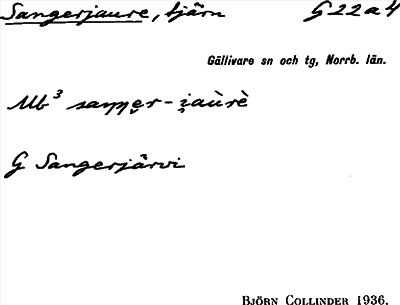 Sangerjaure, tjärn G 22 a 4
Gällivare sn och tg, Norrb. län.
Mb³ saŋŋe̮r-i̯aùrè
G Sangerjärvi
BJÖRN COLLINDER 1936.